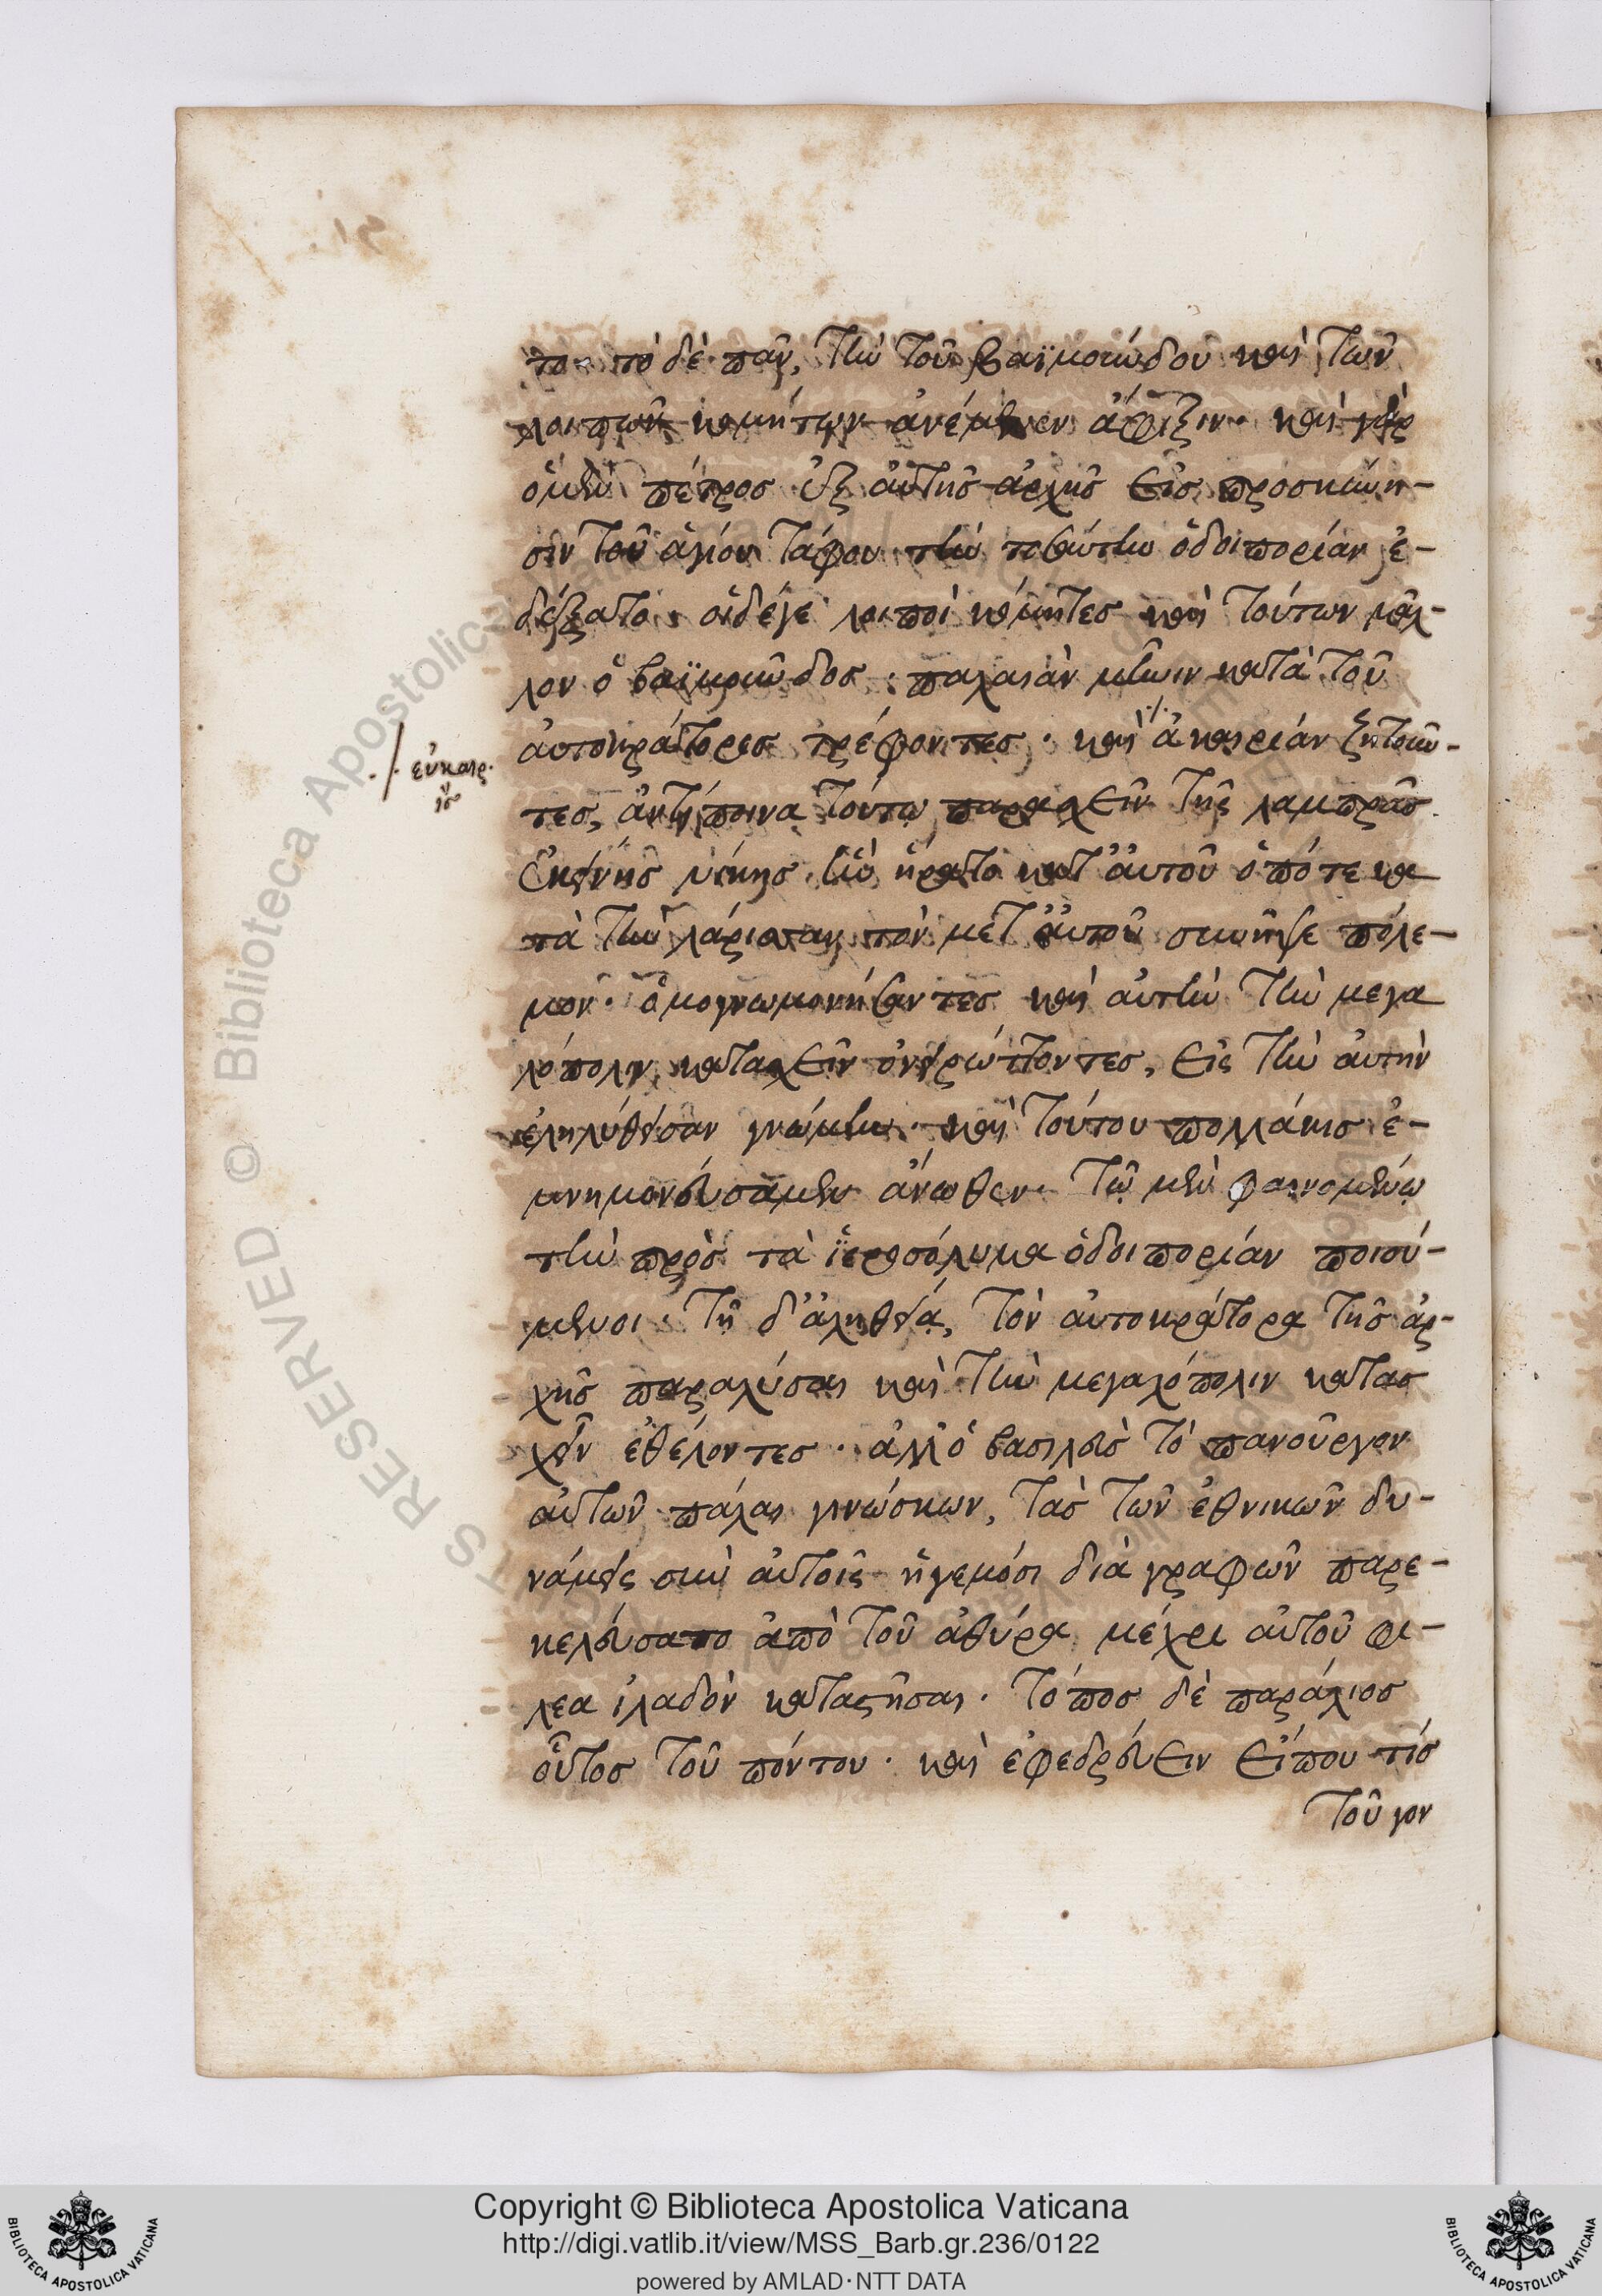 το· τὸ δὲ πᾶν, τὴν τοῦ βαϊμούνδου καὶ τῶν
λοιπῶν κομήτων ἀνέμενεν ἄφιξιν· καὶ γὰρ
ὁ μὲν πέτρος ἐξ αὐτῆς ἀρχῆς εἰς προσκύνη-
σιν τοῦ ἁγίου τάφου τὴν τοσαύτην ὁδοιπορίαν ἐ-
δέξατο· οἱ δέγε λοιποὶ κόμητες καὶ τούτων μᾶλ-
λον ὁ βαϊμοῦνδος· παλαιὰν μῆνιν κατὰ τοῦ
αὐτοκράτορος τρέφοντες· καὶ ἀκαιρίαν ζητοῦν-
τες, ἀντίποινα τούτῳ παρασχεῖν τῆς λαμπρᾶς
ἐκείνης νίκης· ἣν ἤρατο κατ' αὐτοῦ ὁπότε κα
τὰ τὴν λάρισσαν τὸν μετ' αὐτοῦ συνῆψε πόλε-
μον· ὁμογνωμονήσαντες καὶ αὐτὴν τὴν μεγα
λόπολιν κατασχεῖν ὀνειρώττοντες, εἰς τὴν αὐτὴν
ἐληλύθεισαν γνώμην· καὶ τούτου πολλάκις ἐ-
μνημονεύσαμεν ἄνωθεν· τῷ μὲν φαινομένῳ
τὴν πρὸς τὰ ἱεροσόλυμα ὁδοιπορίαν ποιού-
μενοι· τῇ δ' ἀληθείᾳ, τὸν αὐτοκράτορα τῆς ἀρ-
χῆς παραλύσαι καὶ τὴν μεγαλόπολιν κατασ
χεῖν ἐθέλοντες· ἀλλ' ὁ βασιλεὺς τὸ πανοῦργον
αὐτῶν πάλαι γινώσκων, τὰς τῶν ἐθνικῶν δυ-
νάμεις σὺν αὐτοῖς ἡγεμόσι διὰ γραφῶν παρε-
κελεύσατο ἀπὸ τοῦ ἀθύρα μέχρι αὐτοῦ φι-
λεα ἰλαδὸν καταστῆσαι· τόπος δὲ παράλιος
οὗτος τοῦ πόντου· καὶ ἐφεδρεύειν εἴπου τίς
τοῦ γον
./. εὐκαιρ.
ἴσ
Copyright © Biblioteca Apostolica Vaticana
http://digi.vatlib.it/view/MSS_Barb.gr.236/0122
powered by AMLAD·NTT DATA
BIBLIOTECA APOSTOLICA VATICANA
BIBLIOTECA APOSTOLICA VATICANA